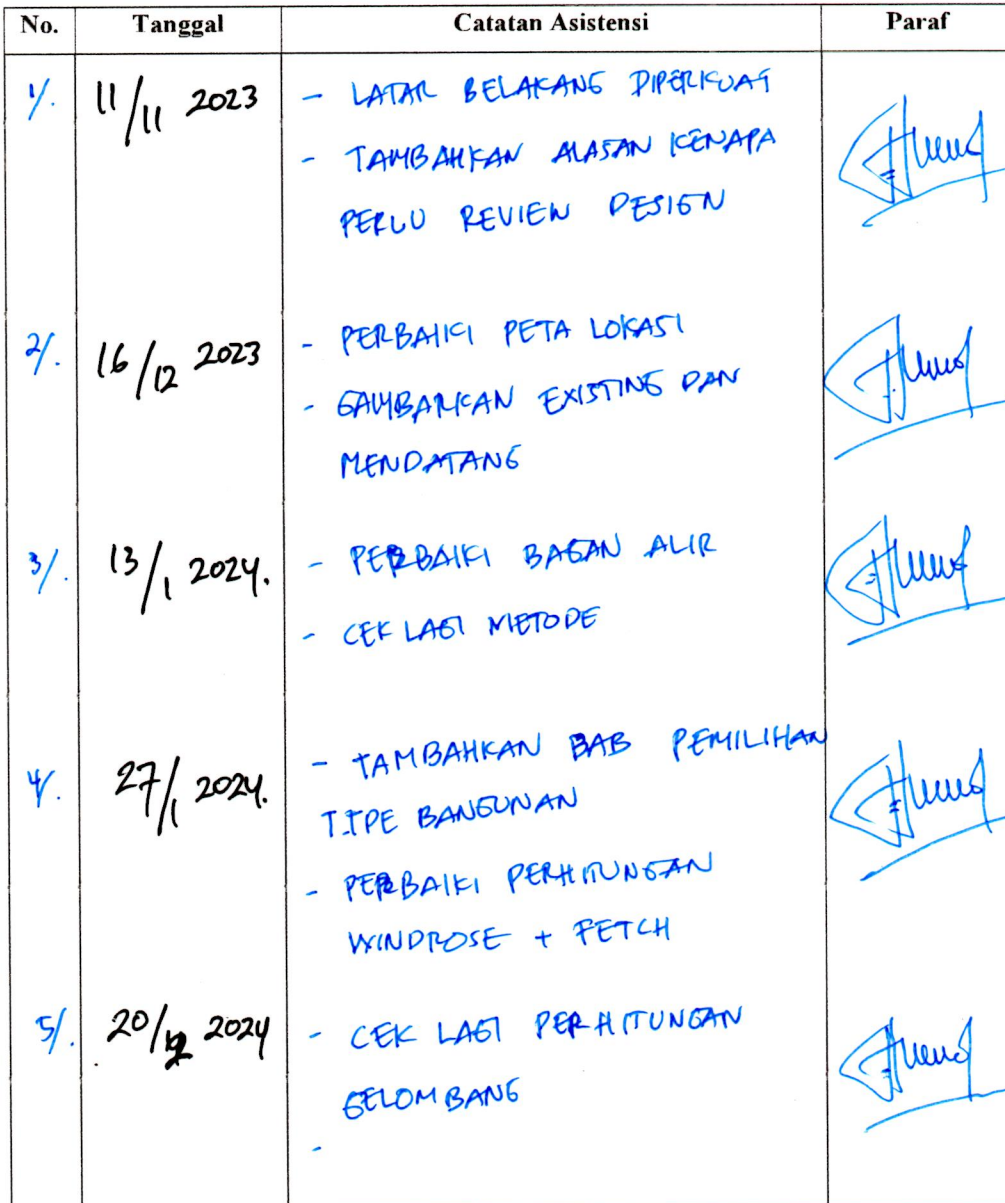 No. Tanggal Catatan Asistensi Paraf
1/. 11/11 2023 - LATAR BELAKANG DIPERKUAT
- TAMBAHKAN ALASAN KENAPA
PERLU REVIEW DESIGN
2/. 16/12 2023 - PERBAIKI PETA LOKASI
- GAMBARKAN EXISTING DAN
MENDATANG
3/. 13/1 2024. - PERBAIKI BAGAN ALIR
- CEK LAGI METODE
4/. 27/1 2024. - TAMBAHKAN BAB PEMILIHAN
TIPE BANGUNAN
- PERBAIKI PERHITUNGAN
WINDROSE + FETCH
5/. 2024 - CEK LAGI PERHITUNGAN
GELOMBANG
-